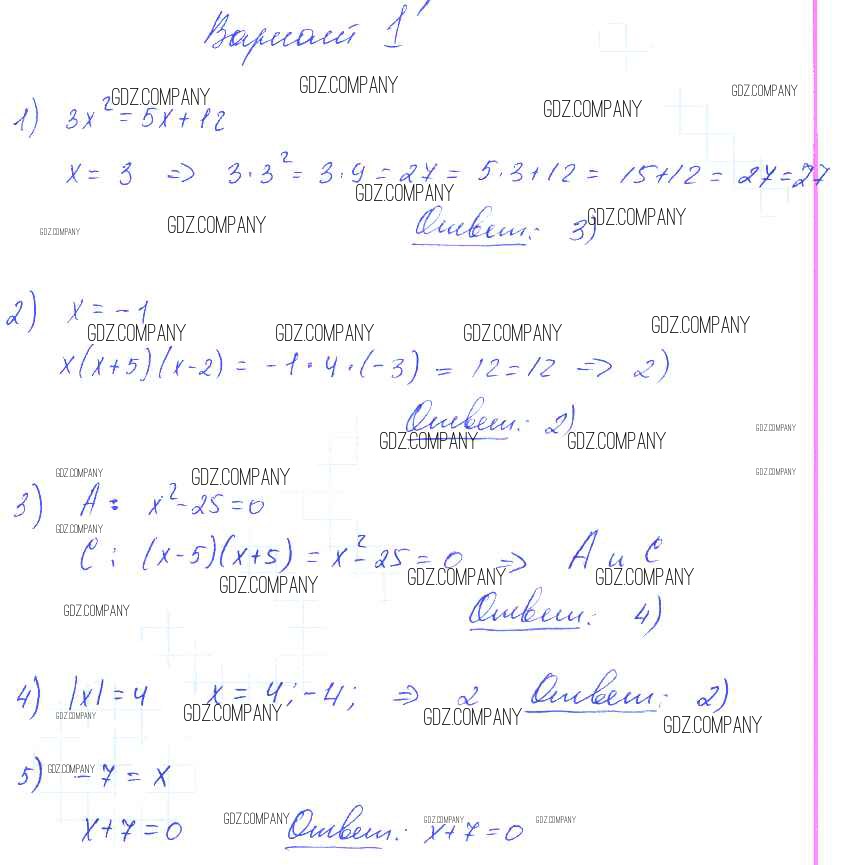 Вариант 1
GDZ.COMPANY GDZ.COMPANY GDZ.COMPANY GDZ.COMPANY
1) 3x² = 5x + 12
x = 3 => 3·3² = 3·9 = 27 = 5·3+12 = 15+12 = 27 = 27
GDZ.COMPANY
GDZ.COMPANY GDZ.COMPANY Ответ: 3) GDZ.COMPANY
2) x = -1
GDZ.COMPANY GDZ.COMPANY GDZ.COMPANY GDZ.COMPANY
x(x+5)(x-2) = -1·4·(-3) = 12 = 12 => 2)
Ответ: 2) GDZ.COMPANY
GDZ.COMPANY GDZ.COMPANY
GDZ.COMPANY GDZ.COMPANY GDZ.COMPANY
3) A: x²-25=0
GDZ.COMPANY
C: (x-5)(x+5) = x²-25=0 => A и C
GDZ.COMPANY GDZ.COMPANY GDZ.COMPANY
GDZ.COMPANY Ответ: 4)
4) |x|=4 x = 4; -4; => 2 Ответ: 2)
GDZ.COMPANY GDZ.COMPANY GDZ.COMPANY GDZ.COMPANY
5) GDZ.COMPANY -7 = x
x+7=0 GDZ.COMPANY Ответ: x+7=0 GDZ.COMPANY GDZ.COMPANY